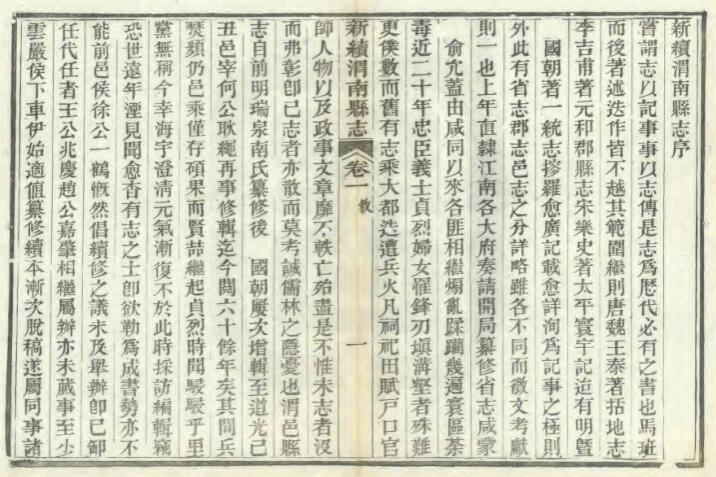 新續渭南縣志序
嘗謂志以記事事以志傳是志爲歷代必有之書也馬班
而後著述迭作皆不越其範圍繼則唐魏王泰著括地志
李吉甫著元和郡縣志宋樂史著太平寰宇記迨有明曁
國朝著一統志搜羅愈廣記載愈詳洵爲記事之極則
外此有省志郡志邑志之分詳略雖各不同而徵文考獻
則一也上年直隸江南各大府奏請開局纂修省志咸蒙
俞允蓋由咸同以來各匪相繼煽亂蹂躪幾遍寰區荼
毒近二十年忠臣義士貞烈婦女罹鋒刃塡溝壑者殊難
更僕數而舊有志乘大都迭遭兵火凡祠祀田賦戸口官
新續渭南縣志 卷一 敘 一
師人物以及政事文章靡不軼亡殆盡是不惟未志者沒
而弗彰卽已志者亦散而莫考誠儒林之隱憂也渭邑縣
志自前明瑞泉南氏纂修後 國朝屢次增輯至道光己
丑邑宰何公耿繩再事修輯迄今閱六十餘年矣其間兵
燹頻仍邑乘僅存碩果而賢喆繼起貞烈時聞駸駸乎里
黨無稱今幸海宇澄清元氣漸復不於此時採訪編輯竊
恐世遠年湮見聞愈杳有志之士卽欲勒爲成書勢亦不
能前邑侯徐公一鶴慨然倡續修之議未及舉辦卽已卸
任代任者王公兆慶趙公嘉肇相繼屬辦亦未蕆事至少
雲嚴侯下車伊始適値纂修續本漸次脫稿遂屬同事諸